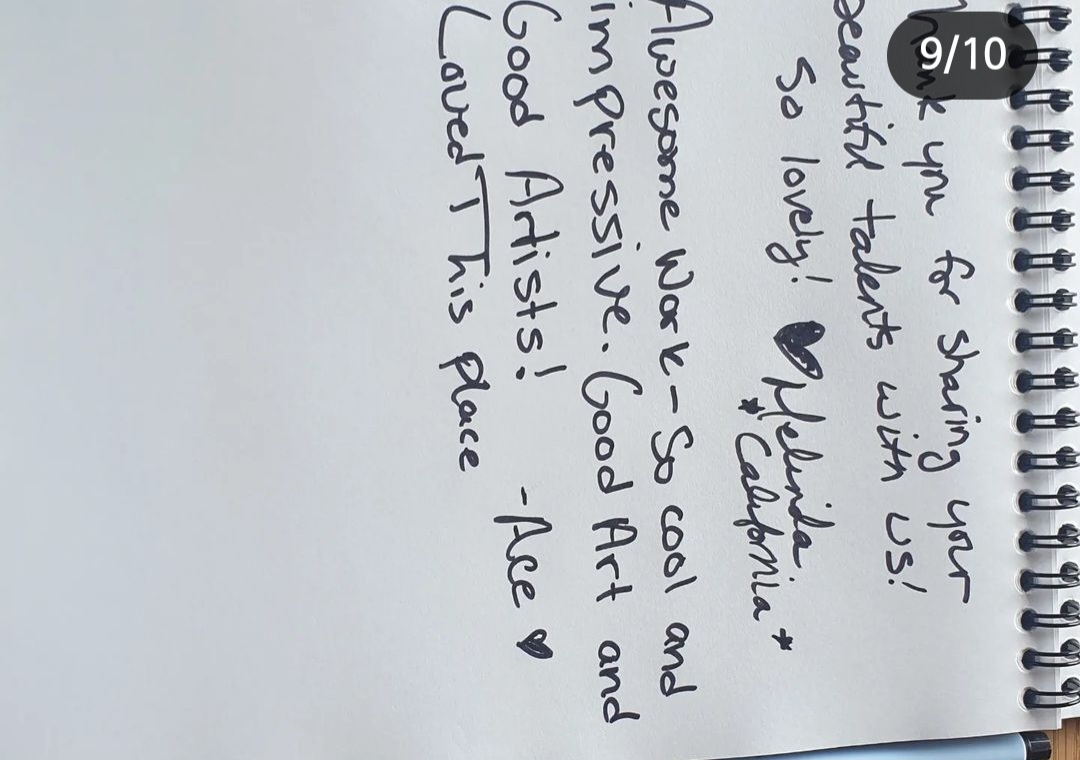 9/10
Thank you for sharing your
beautiful talents with us!
So lovely! ♥ Melinda
*California*
Awesome Work - So cool and
impressive. Good Art and
Good Artists!
Loved This place
-Ace ♥